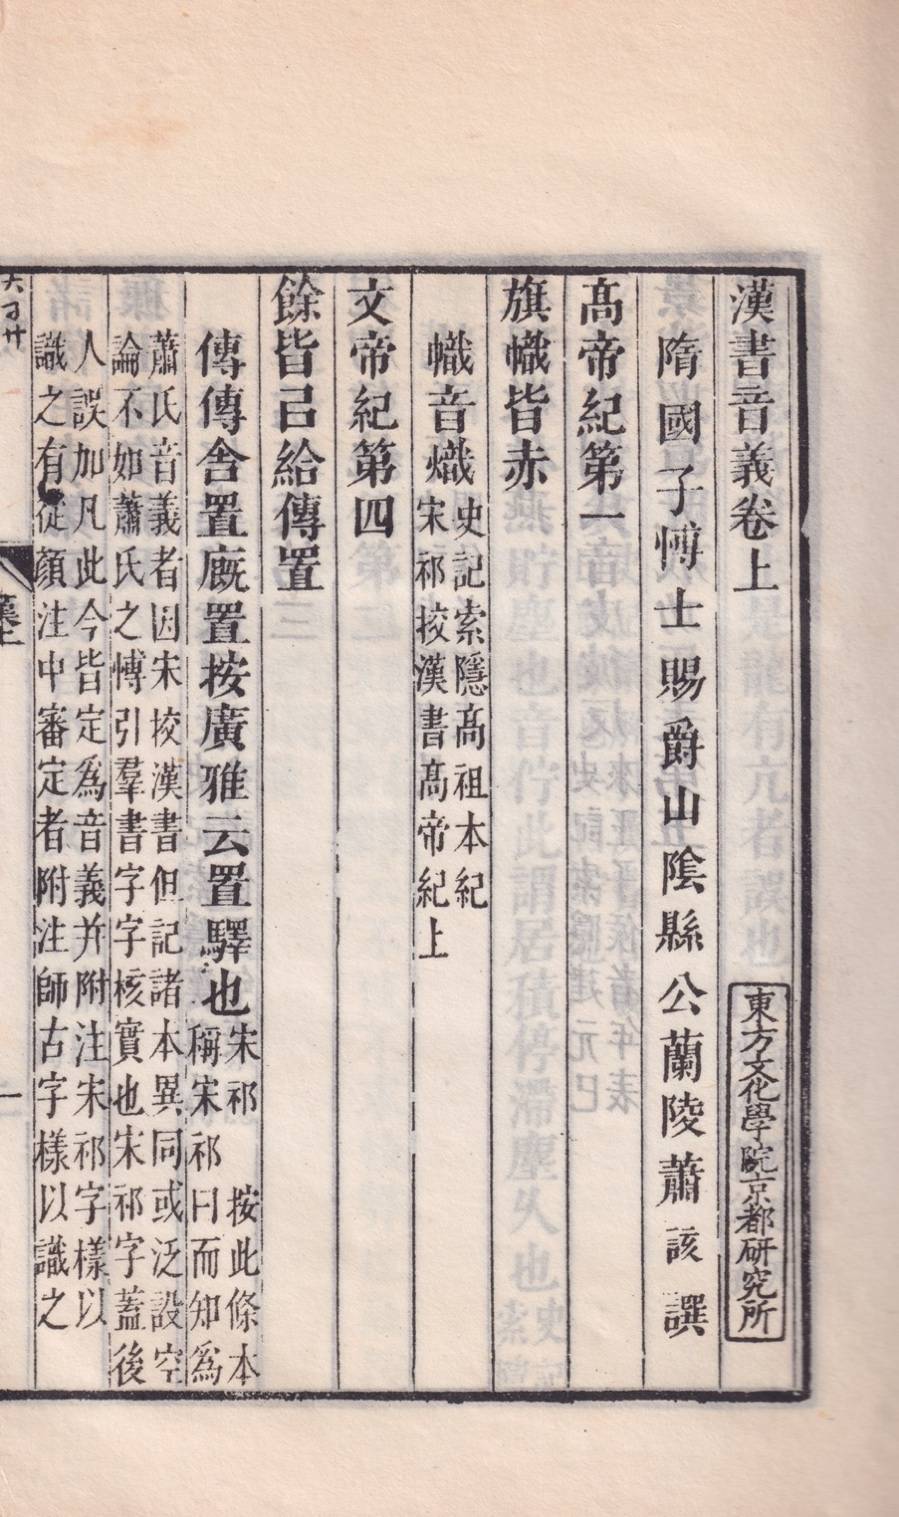 漢書音義卷上
東方文化學院京都研究所
隋國子博士賜爵山陰縣公蘭陵蕭該譔
髙帝紀第一
旗幟皆赤
幟音熾
史記索隱髙祖本紀
宋祁挍漢書髙帝紀上
文帝紀第四
餘皆㠯給傳置
傳傳舍置廐置按廣雅云置驛也
宋祁 按此條本
稱宋祁曰而知爲
蕭氏音義者因宋挍漢書但記諸本異同或泛設空
論不如蕭氏之博引羣書字字核實也宋祁字蓋後
人誤加凡此今皆定爲音義幷附注宋祁字樣以
識之有從顏注中審定者附注師古字樣以識之
漢上
一